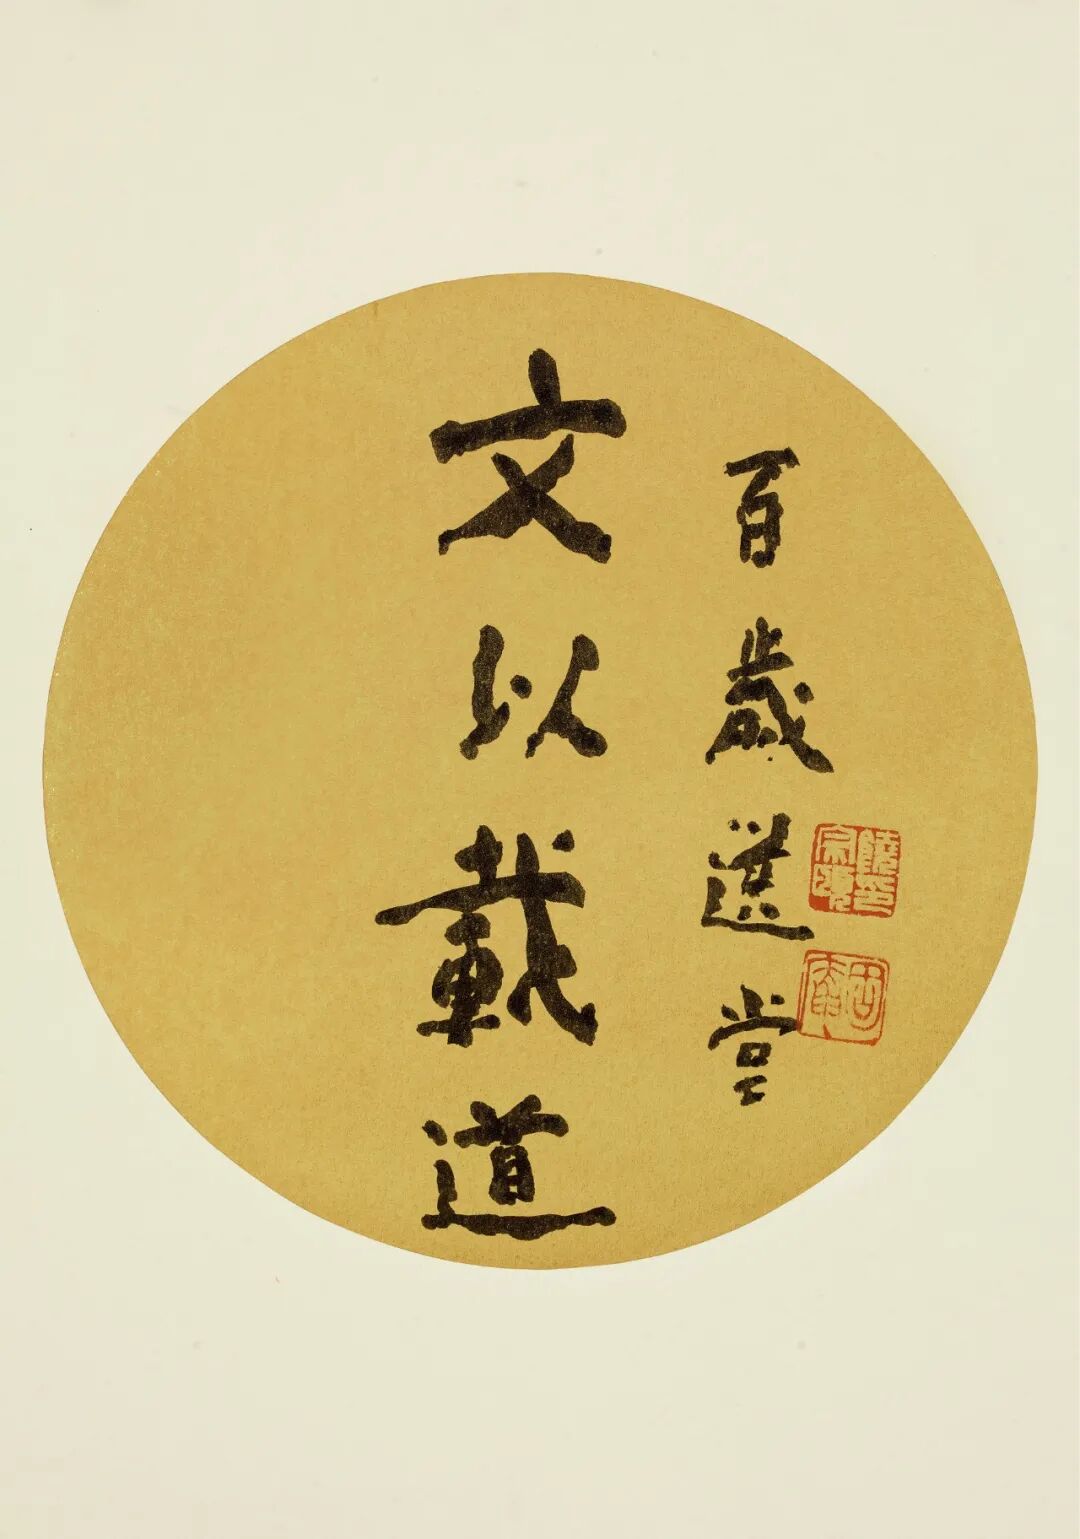 百歲選堂
文以載道
饒宗頤印